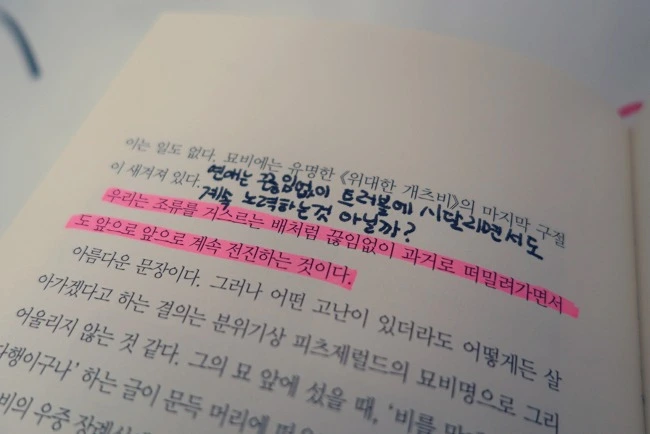 이는 일도 없다. 묘비에는 유명한 《위대한 개츠비》의 마지막 구절
이 새겨져 있다.
연애는 끊임없이 트러블에 시달리면서도
계속 노력하는것 아닐까?
우리는 조류를 거스르는 배처럼 끊임없이 과거로 떠밀려가면서
도 앞으로 앞으로 계속 전진하는 것이다.
아름다운 문장이다. 그러나 어떤 고난이 있더라도 어떻게든 살
아가겠다고 하는 결의는 분위기상 피츠제럴드의 묘비명으로 그리
어울리지 않는 것 같다. 그의 묘 앞에 섰을 때, ‘비를
행이구나’ 하는 글이 문득 머리에
비의 우중